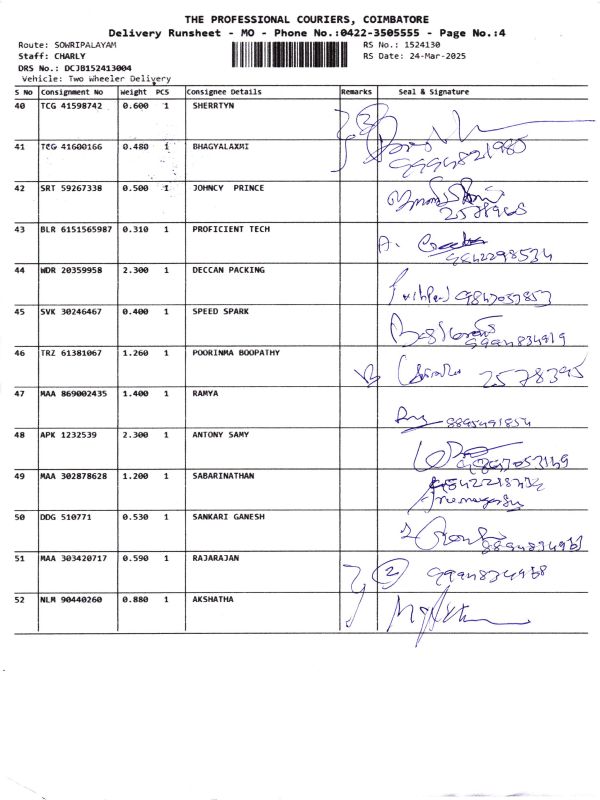 THE PROFESSIONAL COURIERS, COIMBATORE
Delivery Runsheet - MO - Phone No.:0422-3505555 - Page No.:4
Route: SOWRIPALAYAM RS No.: 1524130
Staff: CHARLY RS Date: 24-Mar-2025
DRS No.: DCJB152413004
Vehicle: Two Wheeler Delivery
S No Consignment No Weight PCS Consignee Details Remarks Seal & Signature
40 TCG 41598742 0.600 1 SHERRTYN
41 TCG 41600166 0.480 1 BHAGYALAXMI 9994821985
42 SRT 59267338 0.500 1 JOHNCY PRINCE 2578968
43 BLR 6151565987 0.310 1 PROFICIENT TECH A. 9842298534
44 WDR 20359958 2.300 1 DECCAN PACKING 9847037853
45 SVK 30246467 0.400 1 SPEED SPARK 9994834919
46 TRZ 61381067 1.260 1 POORINMA BOOPATHY 2578395
47 MAA 869002435 1.400 1 RAMYA 8895491854
48 APK 1232539 2.300 1 ANTONY SAMY
49 MAA 302878628 1.200 1 SABARINATHAN
50 DDG 510771 0.530 1 SANKARI GANESH
51 MAA 303420717 0.590 1 RAJARAJAN 2 9994834968
52 NLM 90440260 0.880 1 AKSHATHA